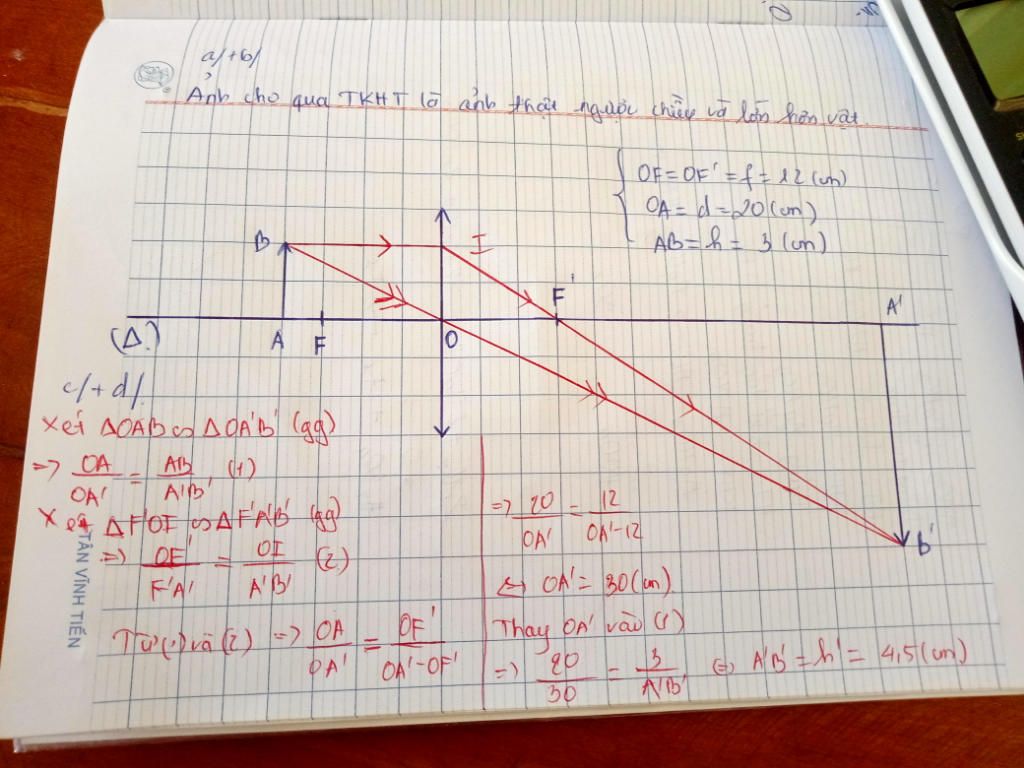 a/+b/
Ảnh cho qua TKHT là ảnh thật ngược chiều và lớn hơn vật.
OF=OF'=f=12(cm)
OA=d=20(cm)
AB=h=3(cm)
B
I
F'
A'
(Δ)
A
F
O
B'
c/+d/
Xét ΔOAB ∽ ΔOA'B' (gg)
=> OA/OA' = AB/A'B' (1)
Xét ΔF'OI ∽ ΔF'A'B' (gg)
=> OF'/F'A' = OI/A'B' (2)
Từ (1) và (2) => OA/OA' = OF'/OA'-OF'
=> 20/OA' = 12/OA'-12
<=> OA' = 30(cm).
Thay OA' vào (1)
=> 20/30 = 3/A'B' <=> A'B' = h' = 4,5(cm)
TÂN VĨNH TIẾN